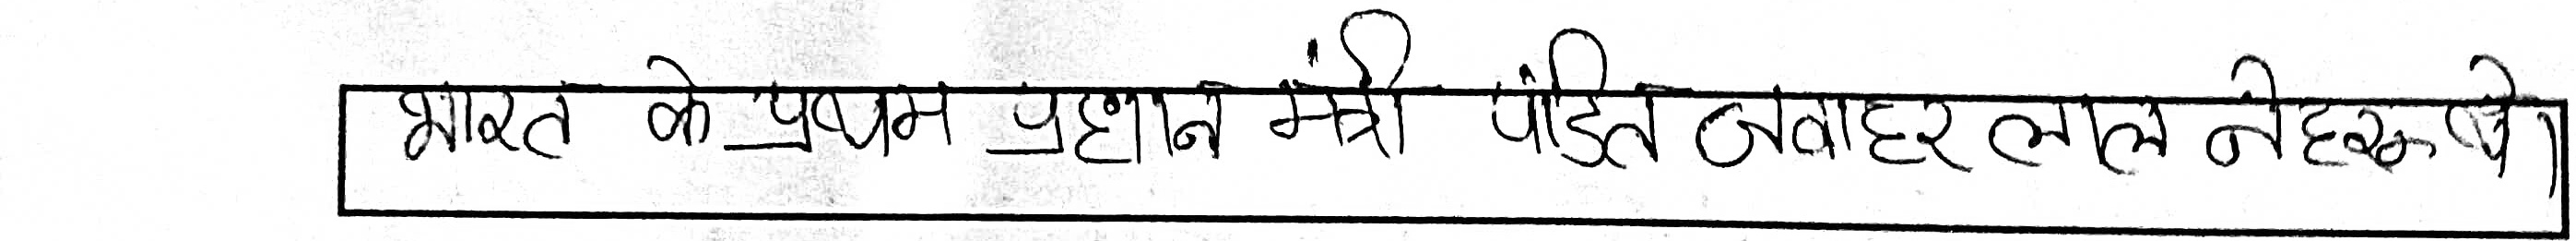 भारत के प्रथम प्रधान मंत्री पंडित जवाहर लाल नेहरू थे।